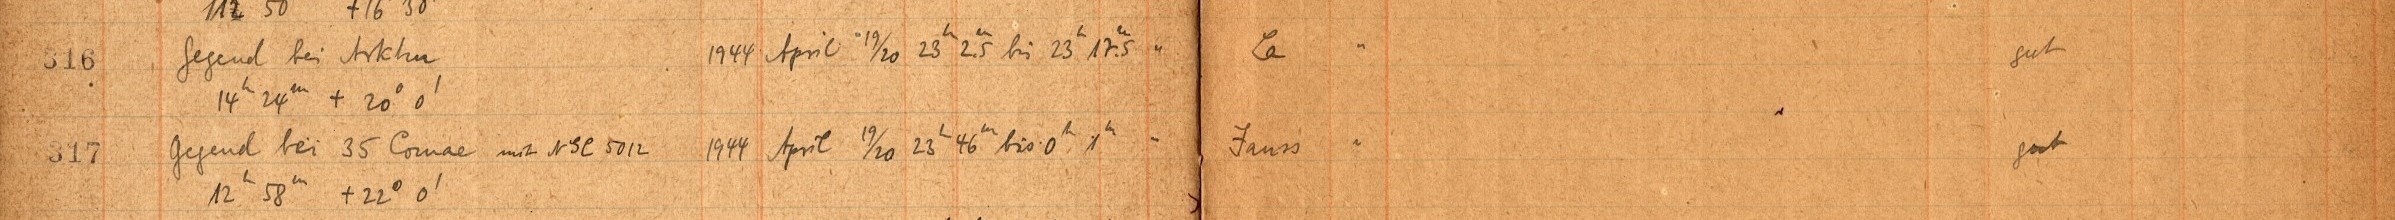 50 +16° 30'
316 Gegend bei Arktur 1944 April 19/20 23h 2m.5 bis 23h 17m.5 " " gut
14h 24m + 20° 0'
317 Gegend bei 35 Comae mit NGC 5012 1944 April 19/20 23h 46m bis 0h 1m " Jauss " gut
12h 58m +22° 0'